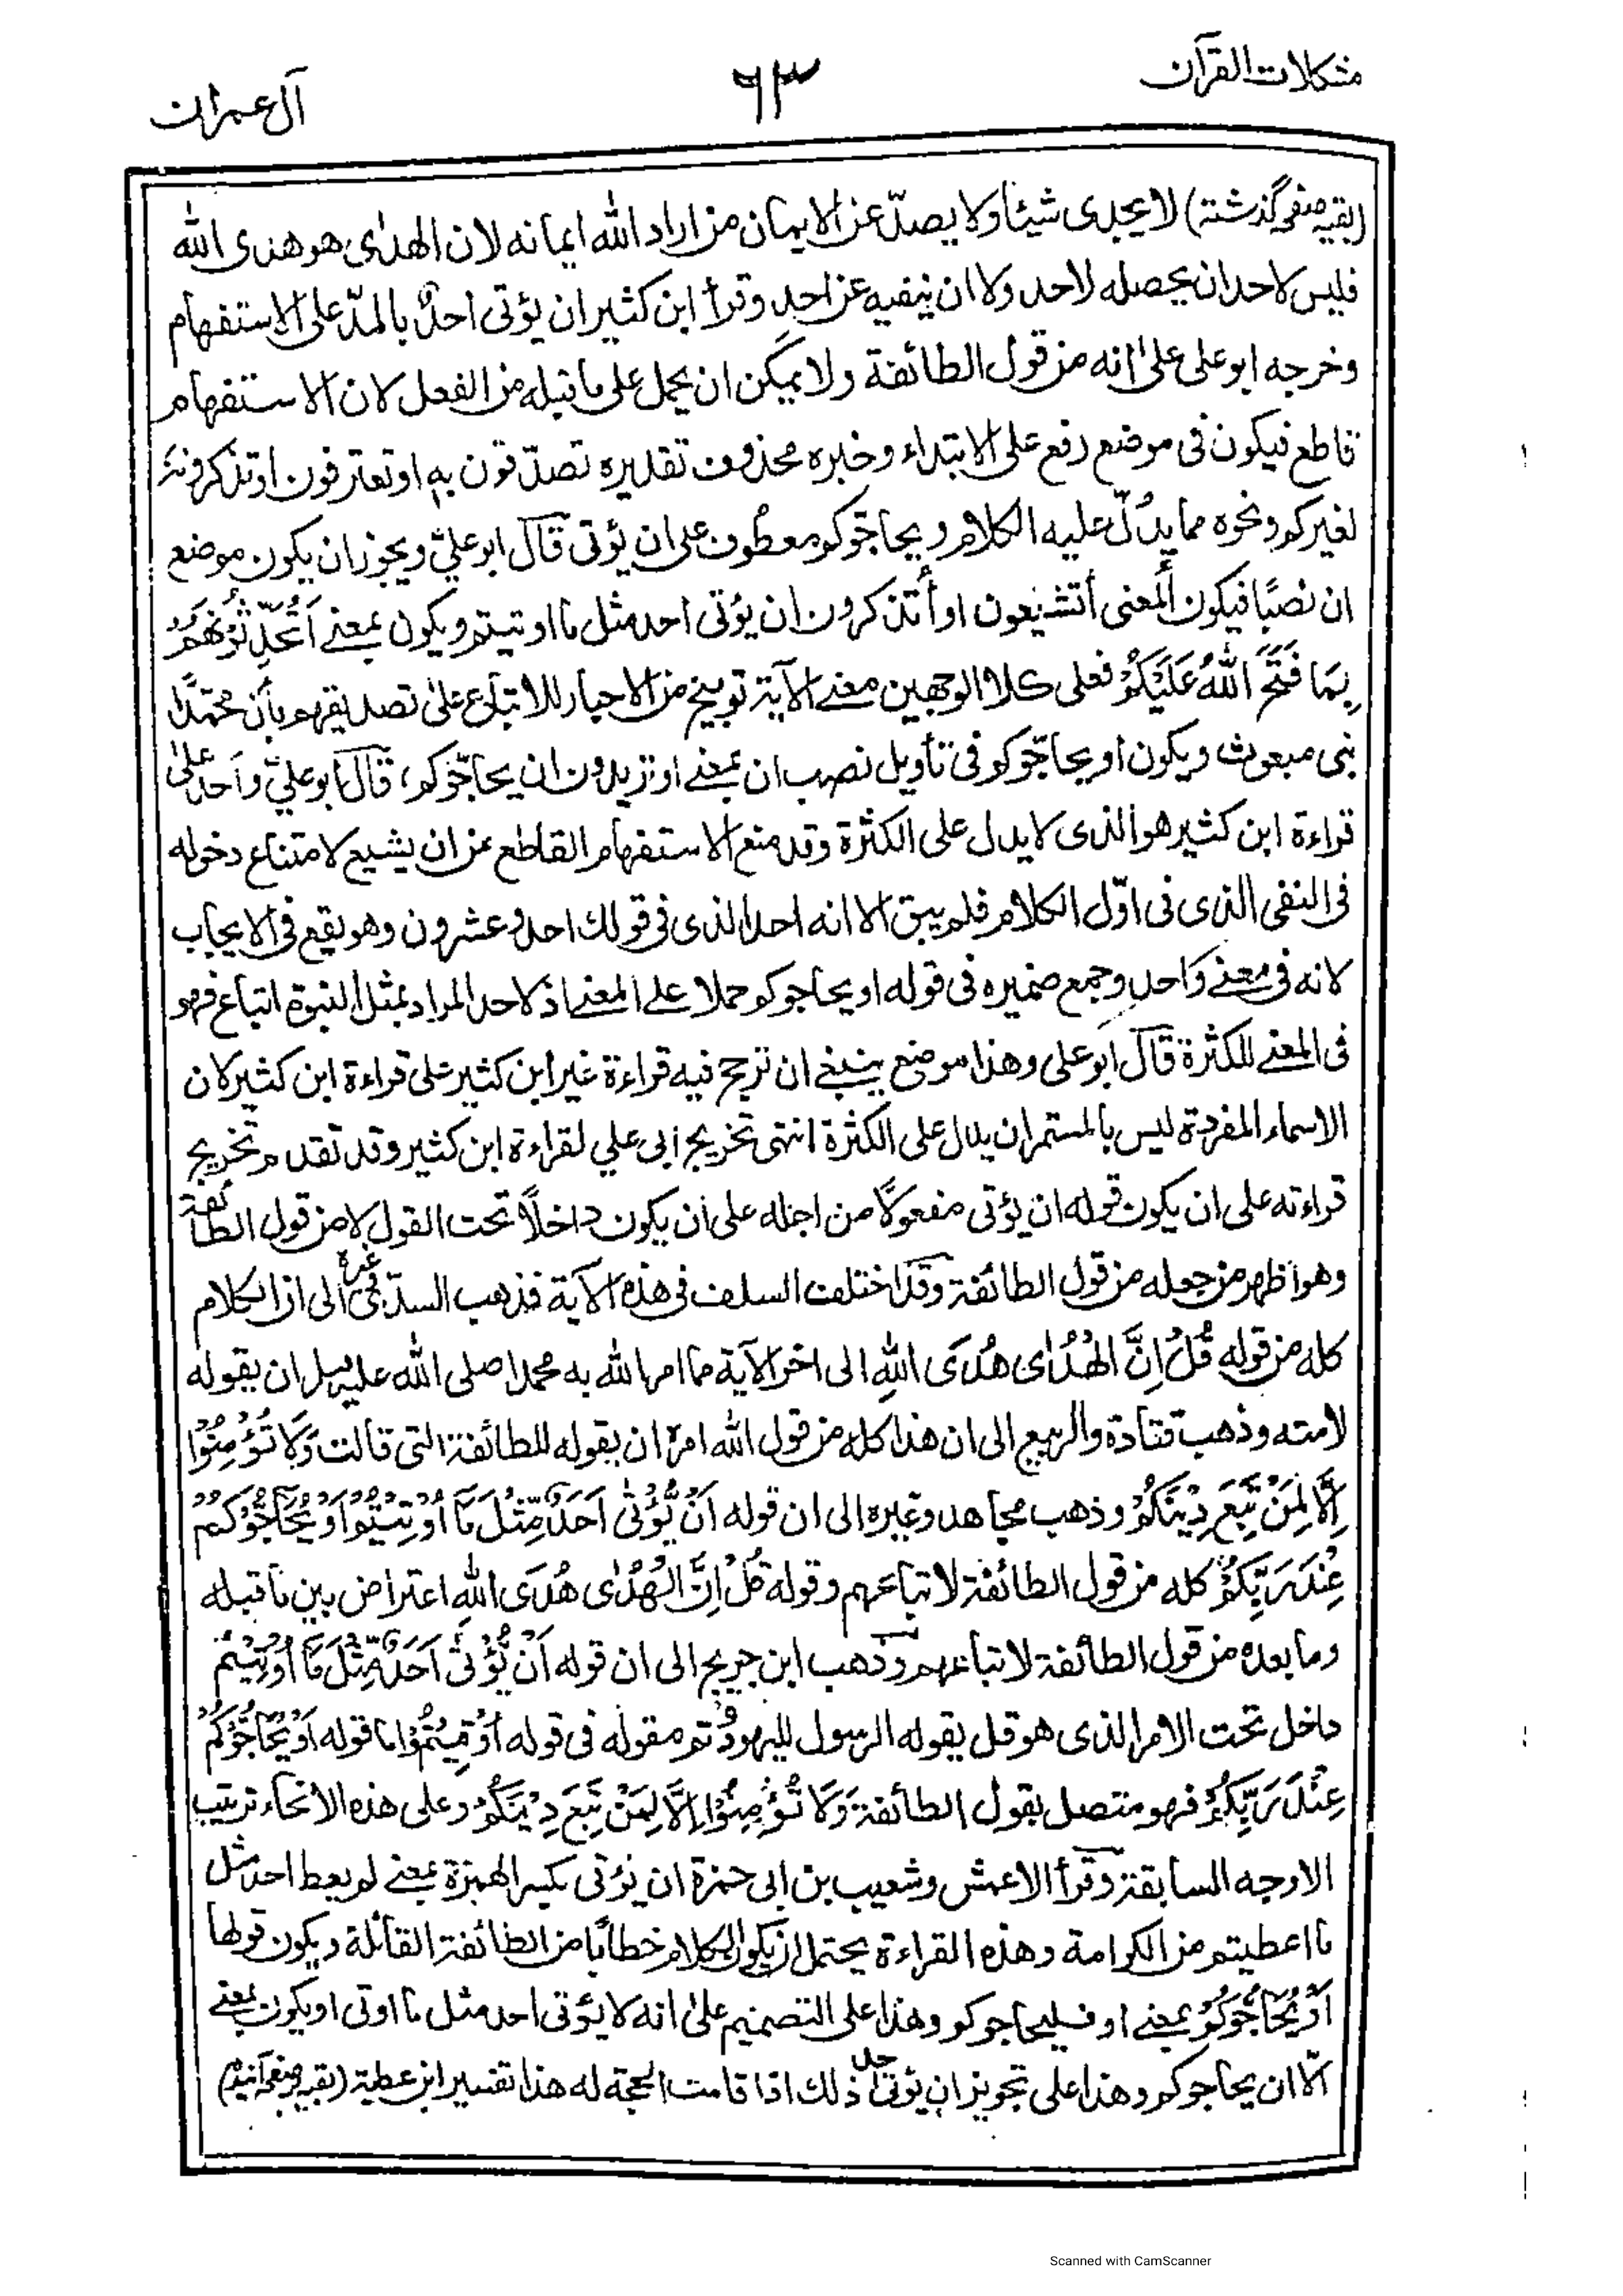 مشكلات القرآن
٦٣
آل عمران
(بقیہ صفحہ گذشتہ) لا يجدى شيئا ولا يصدّ عن الايمان من اراد الله ايمانه لان الهدى هو هدى الله
فليس لاحد ان يحصله لاحد ولا ان ينفيه عن احد وقرأ ابن كثير ان يؤتى احدٌ بالمدّ على الاستفهام
وخرجه ابو على على انه من قول الطائفة ولا يمكن ان يحمل على ما قبله من الفعل لان الاستفهام
قاطع فيكون فى موضع رفع على الابتداء وخبره محذوف تقديره تصدّقون به او تعترفون او تذكرونه
لغيركم ونحوه مما يدُلّ عليه الكلام و يحاجّوكم معطوف على ان يؤتى قال ابو عليّ ويجوز ان يكون موضع
ان نصبًا فيكون المعنى أتشيعون او أتذكرون ان يؤتى احد مثل ما اوتيتم ويكون بمعنى اَتُحَدِّثُوْنَهُمْ
بِمَا فَتَحَ اللّٰهُ عَلَيْكُمْ فعلى كلا الوجهين معنى الآية توبيخ من الاحبار للاتباع على تصديقهم بأن محمّدًا
نبى مبعوث ويكون او يحاجّوكم فى تأويل نصب ان بمعنى او تريدون ان يحاجّوكم، قال ابو عليّ واَحد على
قراءة ابن كثير هو الذى لا يدل على الكثرة وقد منع الاستفهام القاطع من ان يشيع لامتناع دخوله
فى النفى الذى فى اوّل الكلام فلم يبق الا انه احد الذى فى قولك احد وعشرون وهو يقع فى الايجاب
لانه فى معنى وَاحد وجمع ضميره فى قوله او يحاجوكم حملا على المعنى اذ لاحد المراد بمثل النبوة اتباع فهو
فى المعنى للكثرة قال ابو على وهذا موضع ينبغى ان ترجح فيه قراءة غير ابن كثير على قراءة ابن كثير لان
الاسماء المفردة ليس بالمستمر ان يدل على الكثرة انتهى تخريج ابى علي لقراءة ابن كثير وقد تقدم تخريج
قراءته على ان يكون قوله ان يؤتى مفعولًا من اجله على ان يكون داخلاً تحت القول لا من قول الطائفة
وهو اظهر من جعله من قول الطائفة وقد اختلف السلف فى هذه الآية فذهب السدّى وغيره الى ان الكلام
كله من قوله قُلْ اِنَّ الْهُدٰى هُدَى اللهِ الى اخر الآية مما امر الله به محمدا صلى الله عليه وسلم ان يقوله
لامته وذهب قتادة والربيع الى ان هذا كله من قول الله امره ان يقوله للطائفة التى قالت وَلَا تُؤْمِنُوْا
اِلَّا لِمَنْ تَبِعَ دِيْنَكُمْ وذهب مجاهد وغيره الى ان قوله اَنْ يُّؤْتٰى اَحَدٌ مِّثْلَ مَا اُوْتِيْتُمْ اَوْ يُحَاجُّوْكُمْ
عِنْدَ رَبِّكُمْ كله من قول الطائفة لاتباعهم وقوله قُلْ اِنَّ الْهُدٰى هُدَى اللهِ اعتراض بين ما قبله
وما بعده من قول الطائفة لاتباعهم وذهب ابن جريج الى ان قوله اَنْ يُّؤْتٰى اَحَدٌ مِّثْلَ مَا اُوْتِيْتُمْ
داخل تحت الامر الذى هو قل يقوله الرسول لليهود وتم مقوله فى قوله اُوْتِيْتُمْ واما قوله اَوْ يُحَاجُّوْكُمْ
عِنْدَ رَبِّكُمْ فهو متصل بقول الطائفة وَلَا تُؤْمِنُوْا اِلَّا لِمَنْ تَبِعَ دِيْنَكُمْ وعلى هذه الانحاء ترتيب
الاوجه السابقة وقرأ الاعمش وشعيب بن ابى حمزة ان يؤتى بكسر الهمزة بمعنى لم يعط احد مثل
ما اعطيتم من الكرامة وهذه القراءة يحتمل ان يكون الكلام خطابًا من الطائفة القائلة ويكون قولها
اَوْ يُحَاجُّوْكُمْ بمعنى او فليحاجوكم وهذا على التصميم على انه لا يؤتى احد مثل ما اوتى او يكون بمعنى
الّا ان يحاجوكم وهذا على تجويز ان يؤتى احد ذلك اذا قامت الحجة له هذا تفسير ابن عطية (بقیہ صفحہ آئندہ)
Scanned with CamScanner